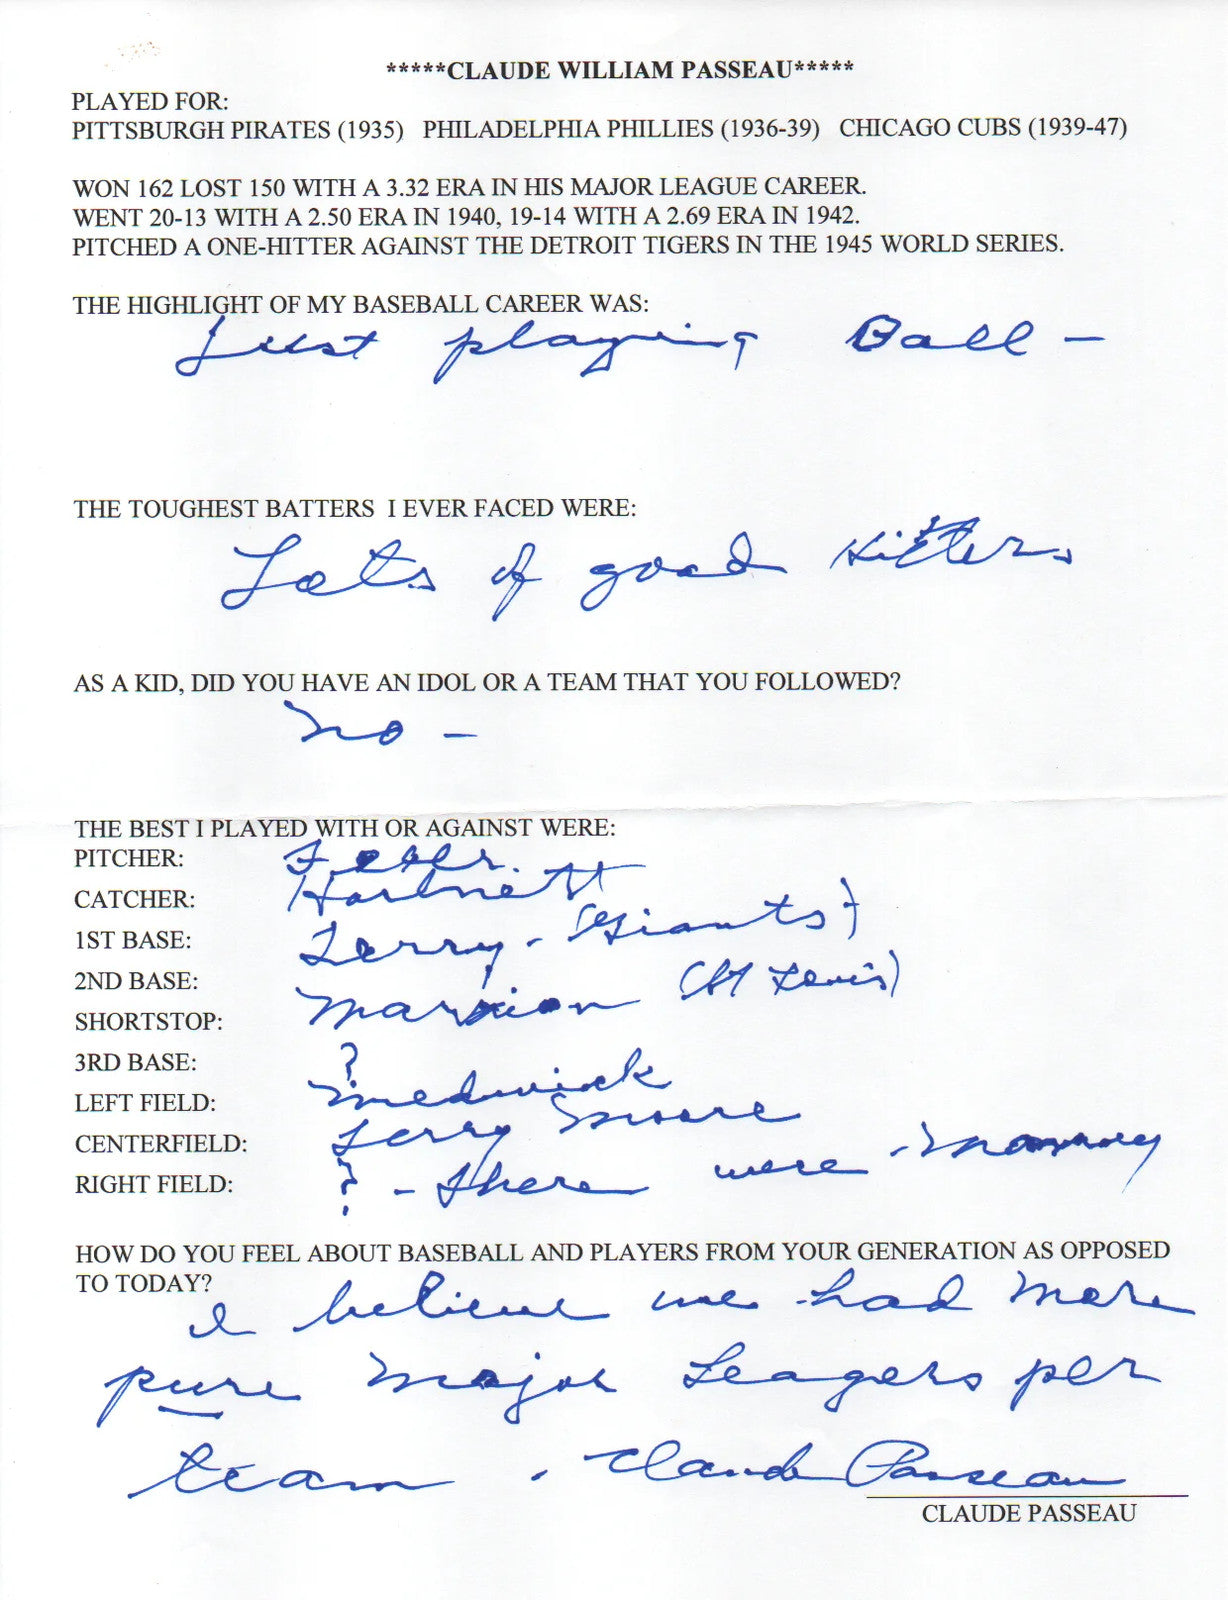 *****CLAUDE WILLIAM PASSEAU*****
PLAYED FOR:
PITTSBURGH PIRATES (1935) PHILADELPHIA PHILLIES (1936-39) CHICAGO CUBS (1939-47)
WON 162 LOST 150 WITH A 3.32 ERA IN HIS MAJOR LEAGUE CAREER.
WENT 20-13 WITH A 2.50 ERA IN 1940, 19-14 WITH A 2.69 ERA IN 1942.
PITCHED A ONE-HITTER AGAINST THE DETROIT TIGERS IN THE 1945 WORLD SERIES.
THE HIGHLIGHT OF MY BASEBALL CAREER WAS:
Just playing Ball -
THE TOUGHEST BATTERS I EVER FACED WERE:
Lots of good Hitters
AS A KID, DID YOU HAVE AN IDOL OR A TEAM THAT YOU FOLLOWED?
No -
THE BEST I PLAYED WITH OR AGAINST WERE:
PITCHER: Feller.
CATCHER: Hartnett
1ST BASE: Terry - (Giants)
2ND BASE:
SHORTSTOP: Marion (St Louis)
3RD BASE: ?
LEFT FIELD: Medwick
CENTERFIELD: Terry Moore
RIGHT FIELD: ? - There were - many
HOW DO YOU FEEL ABOUT BASEBALL AND PLAYERS FROM YOUR GENERATION AS OPPOSED
TO TODAY?
I believe we had more
pure major Leagers per
team. Claude Passeau
CLAUDE PASSEAU